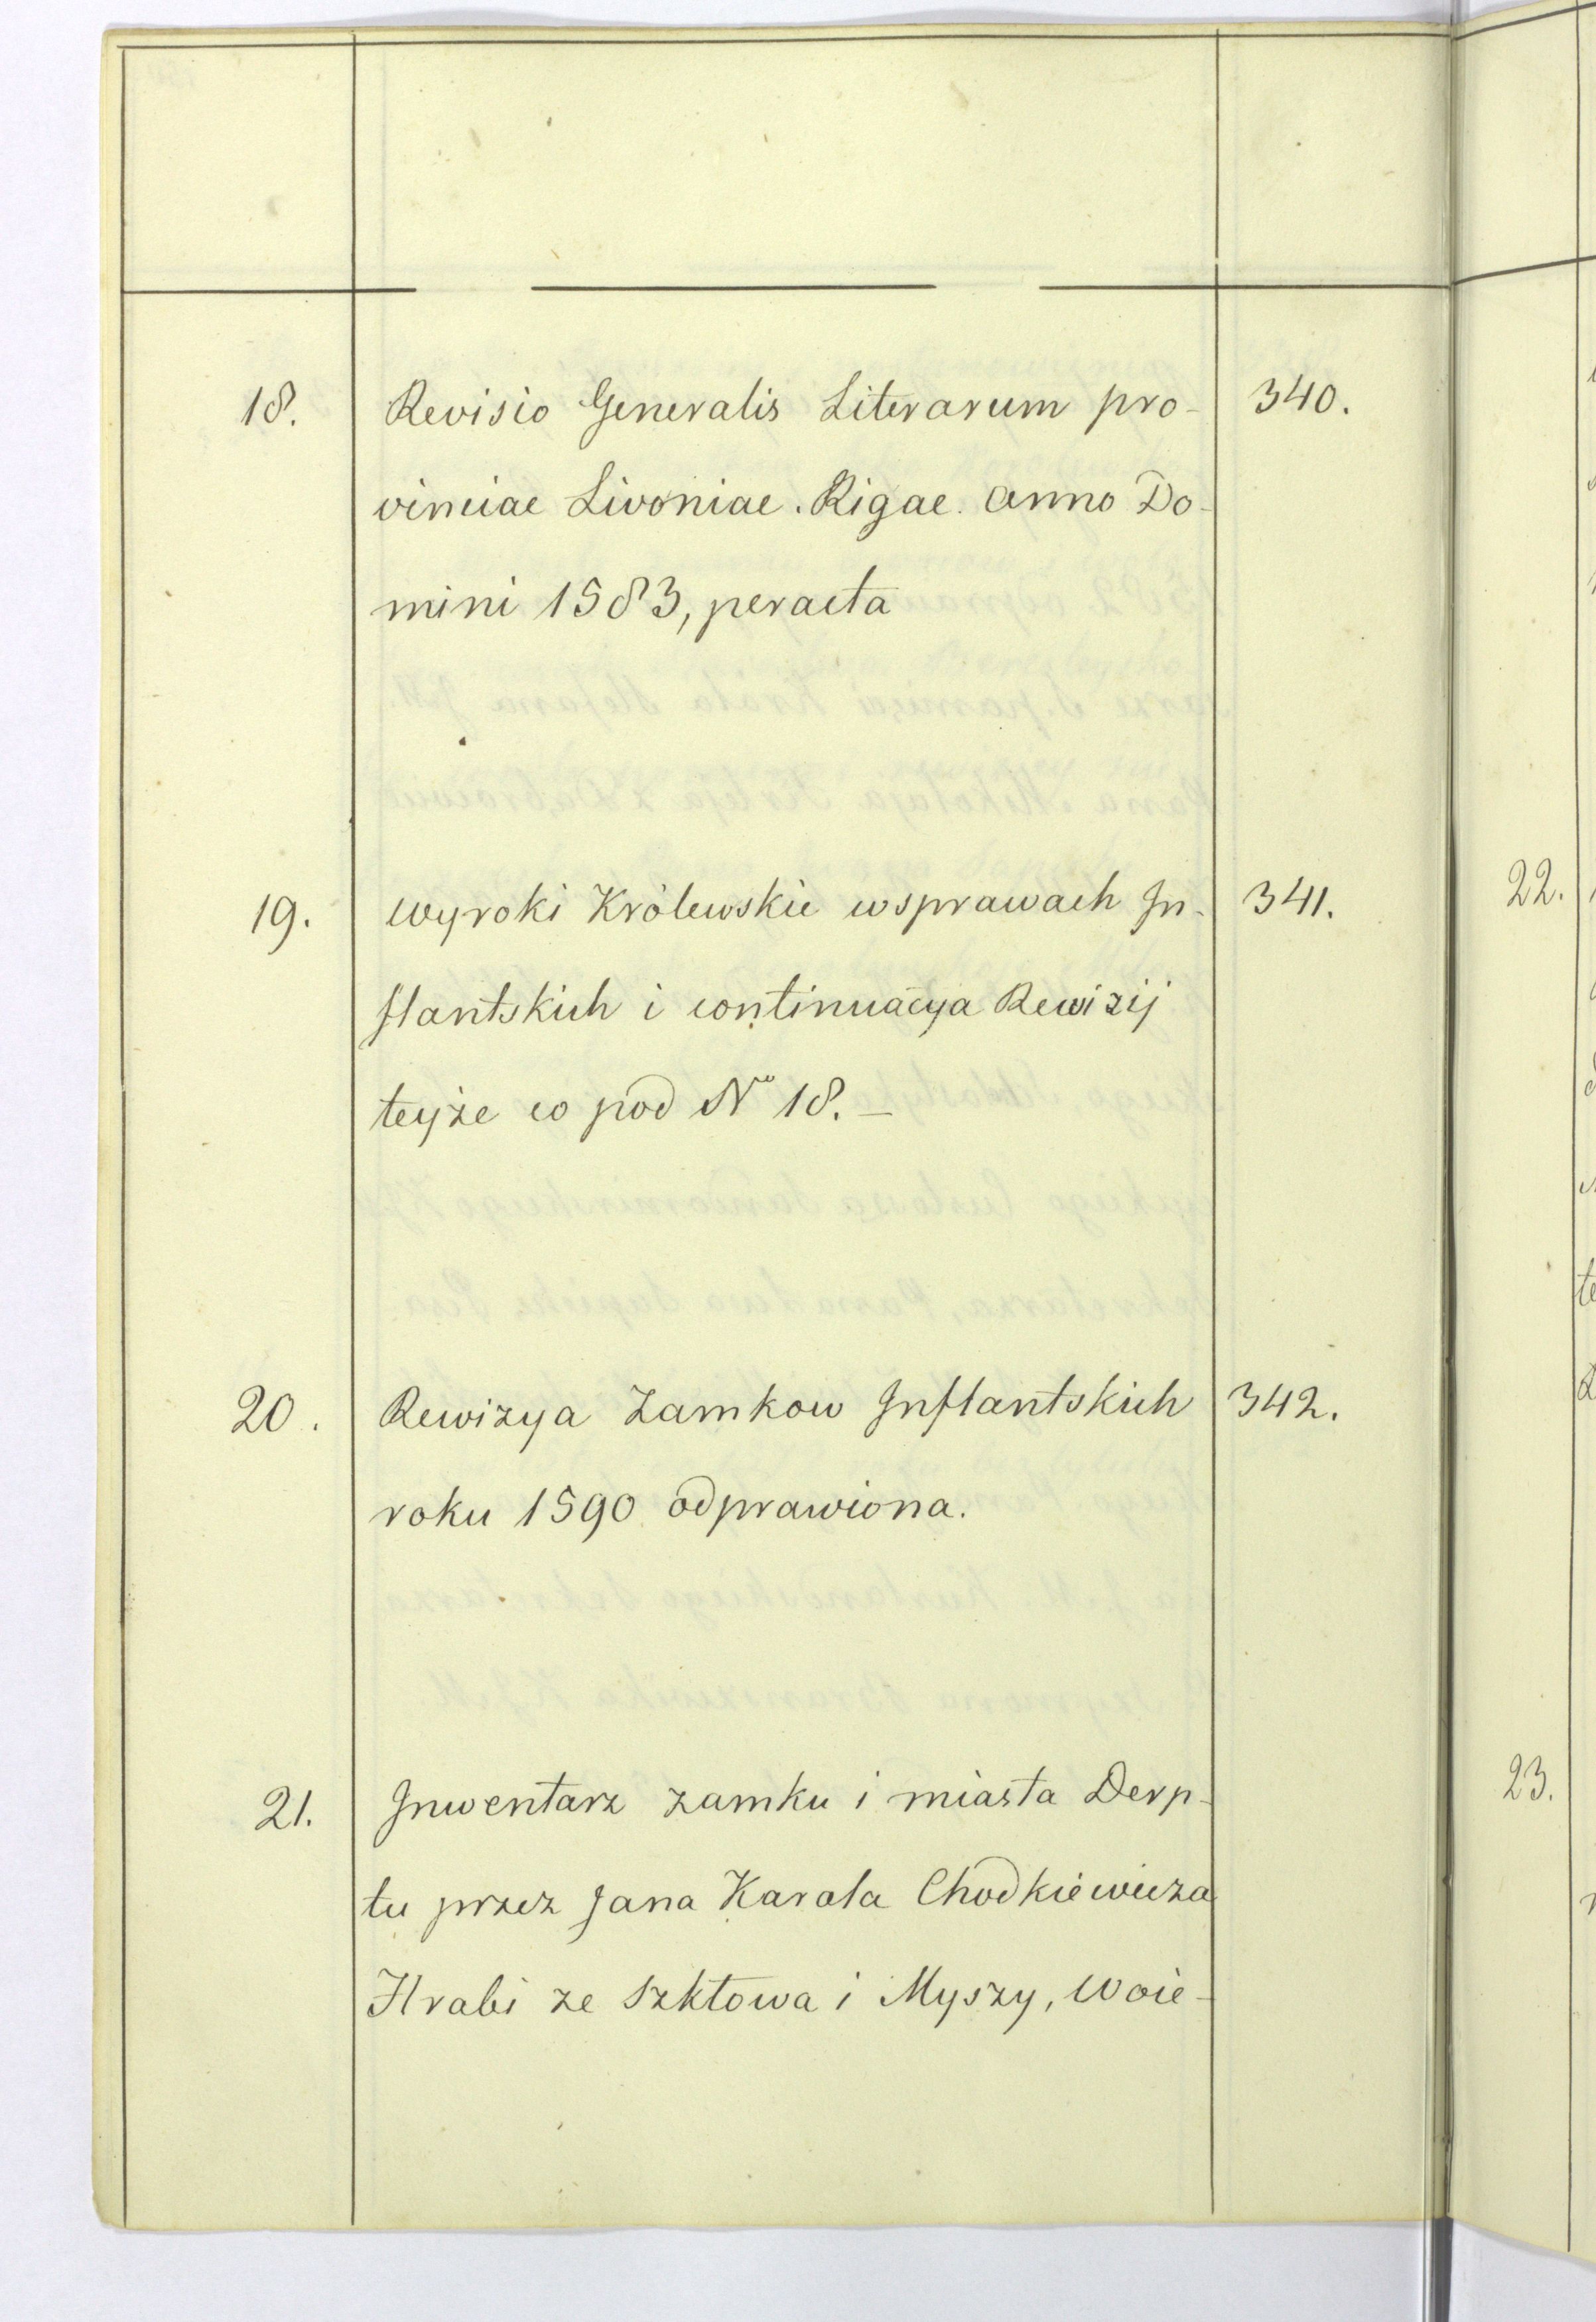 18. Revisio Generalis Literarum pro- 340.
vinciae Livoniae. Rigae. Anno Do-
mini 1583, peracta
19. Wyroki Królewskie w sprawach In- 341.
flantskich i continuacya Rewizij
teyże co pod No 18. –
20. Rewizya Zamkow Inflantskich 342.
roku 1590 odprawiona.
21. Inwentarz zamku i miasta Derp-
tu przez Jana Karola Chodkiewicza
Hrabi ze Szkłowa i Myszy, Woie-
22.
23.